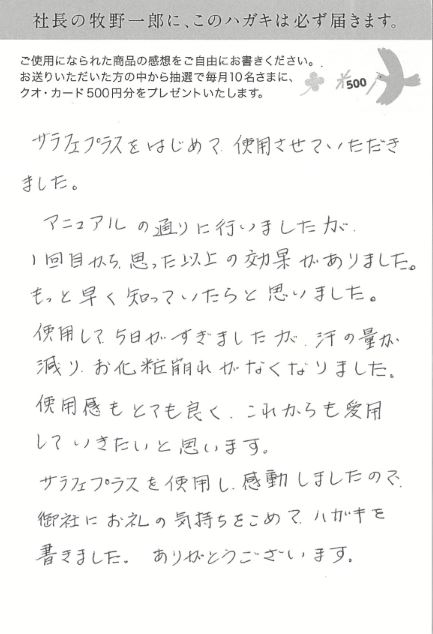 社長の牧野一郎に、このハガキは必ず届きます。
ご使用になられた商品の感想をご自由にお書きください。
お送りいただいた方の中から抽選で毎月10名さまに、
クオ・カード500円分をプレゼントいたします。
500
サラフェプラスをはじめて、使用させていただき
ました。
マニュアルの通りに行いましたが、
1回目から、思った以上の効果がありました。
もっと早く知っていたらと思いました。
使用して、5日がすぎましたが、汗の量が
減り、お化粧崩れがなくなりました。
使用感もとても良く、これからも愛用
していきたいと思います。
サラフェプラスを使用し、感動しましたので、
御社にお礼の気持ちをこめて、ハガキを
書きました。 ありがとうございます。